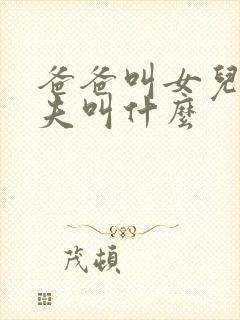 爸爸叫女兒
夫叫什麼
茂頓